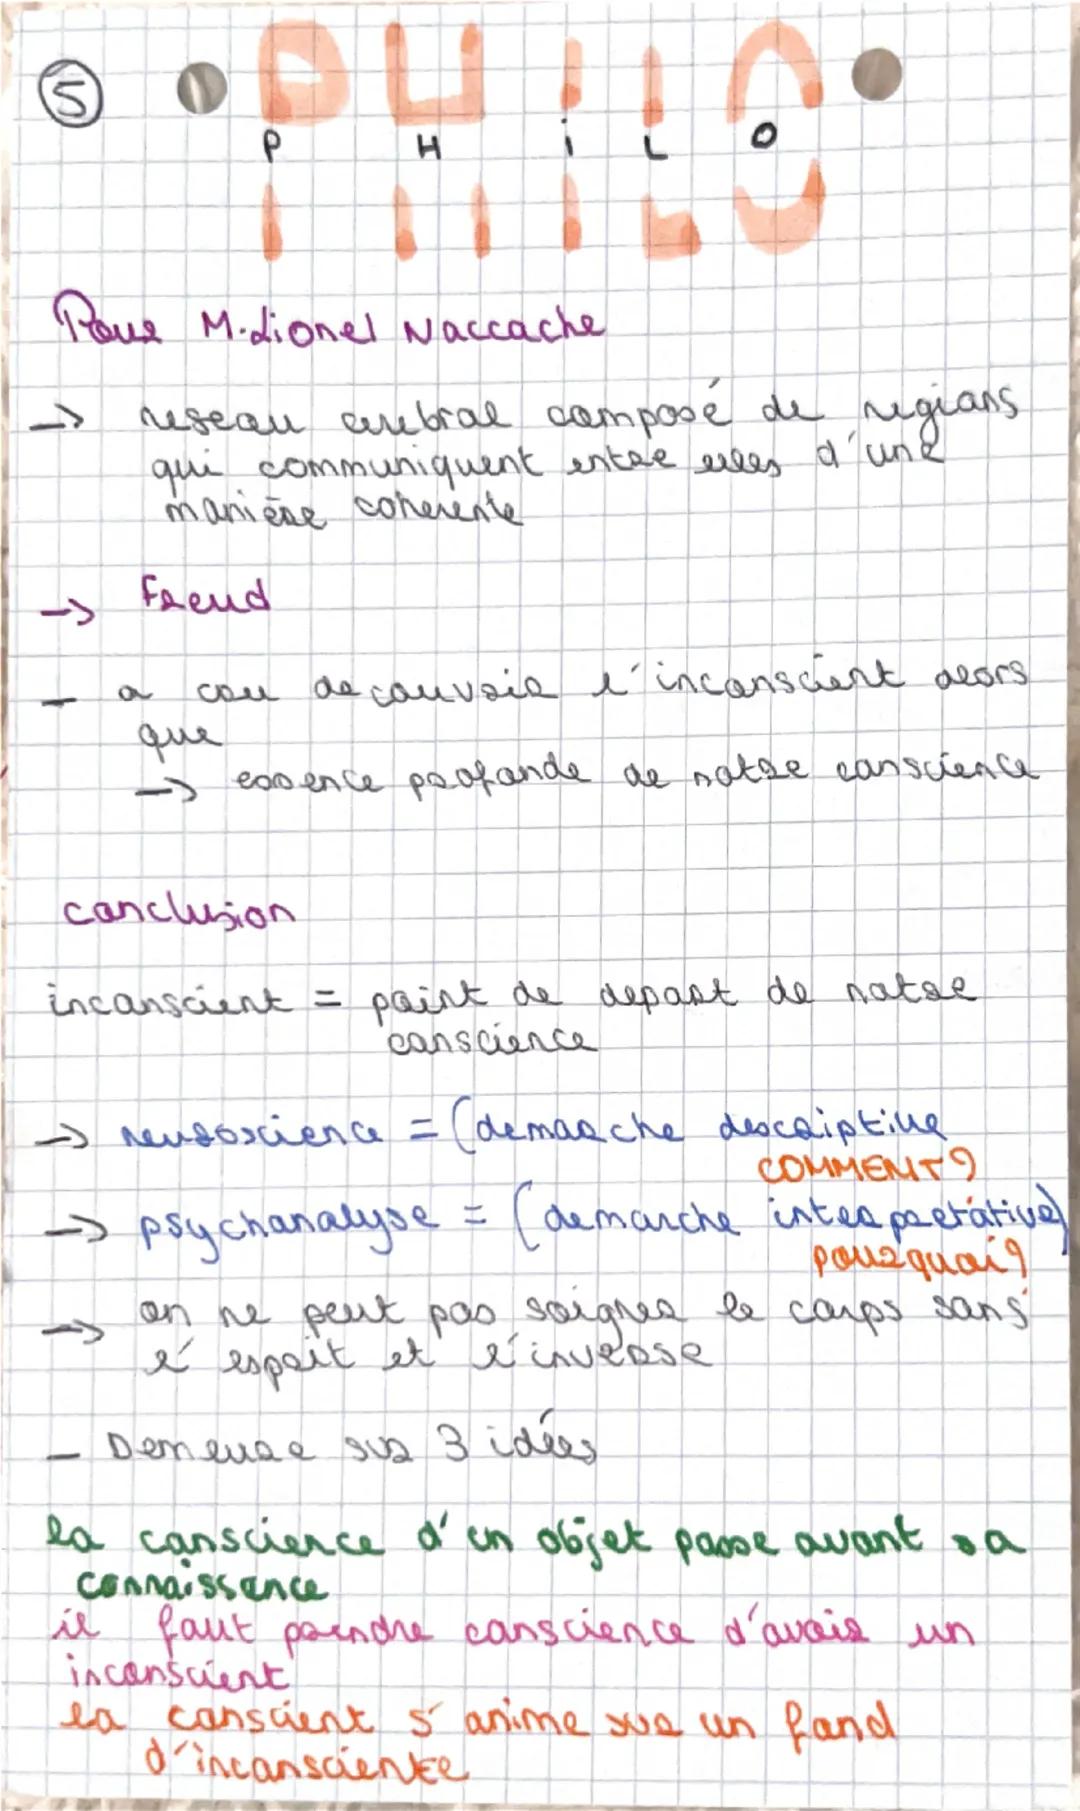 5
PHILO
P H i L O
Pour M.Lionel Naccache
-> reseau cerebral composé de regions
qui communiquent entre elles d'une
manière coherente
-> Freud
- a cou decouvrir l'inconscient alors
que
-> essence profonde de notre conscience
conclusion
inconscient = point de depart de notre
conscience
-> neuroscience = (demarche descriptive
COMMENT?
-> psychanalyse = (demarche interpretátive)
pourquoi?
-> on ne peut pas soigner le corps sans
l'esprit et l'inverse
- Demeure sur 3 idées
la conscience d'un objet passe avant sa
connaissance
il faut prendre conscience d'avoir un
inconscient
la conscient s'anime sur un fond
d'inconsciente